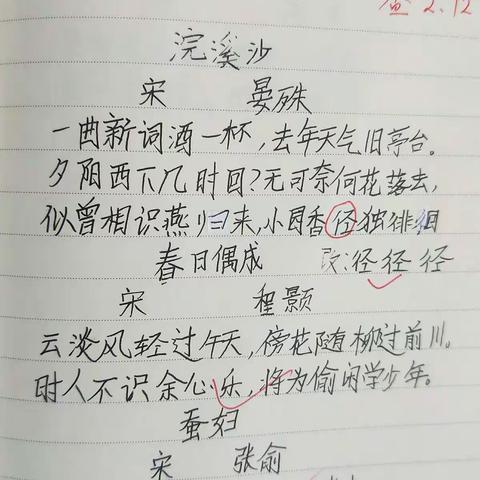 查 2.12
浣溪沙
宋 晏殊
一曲新词酒一杯，去年天气旧亭台。
夕阳西下几时回？无可奈何花落去，
似曾相识燕归来，小园香径独徘徊
春日偶成 改：径径径
宋 程颢
云淡风轻过午天，傍花随柳过前川。
时人不识余心乐，将为偷闲学少年。
蚕妇
宋 张俞